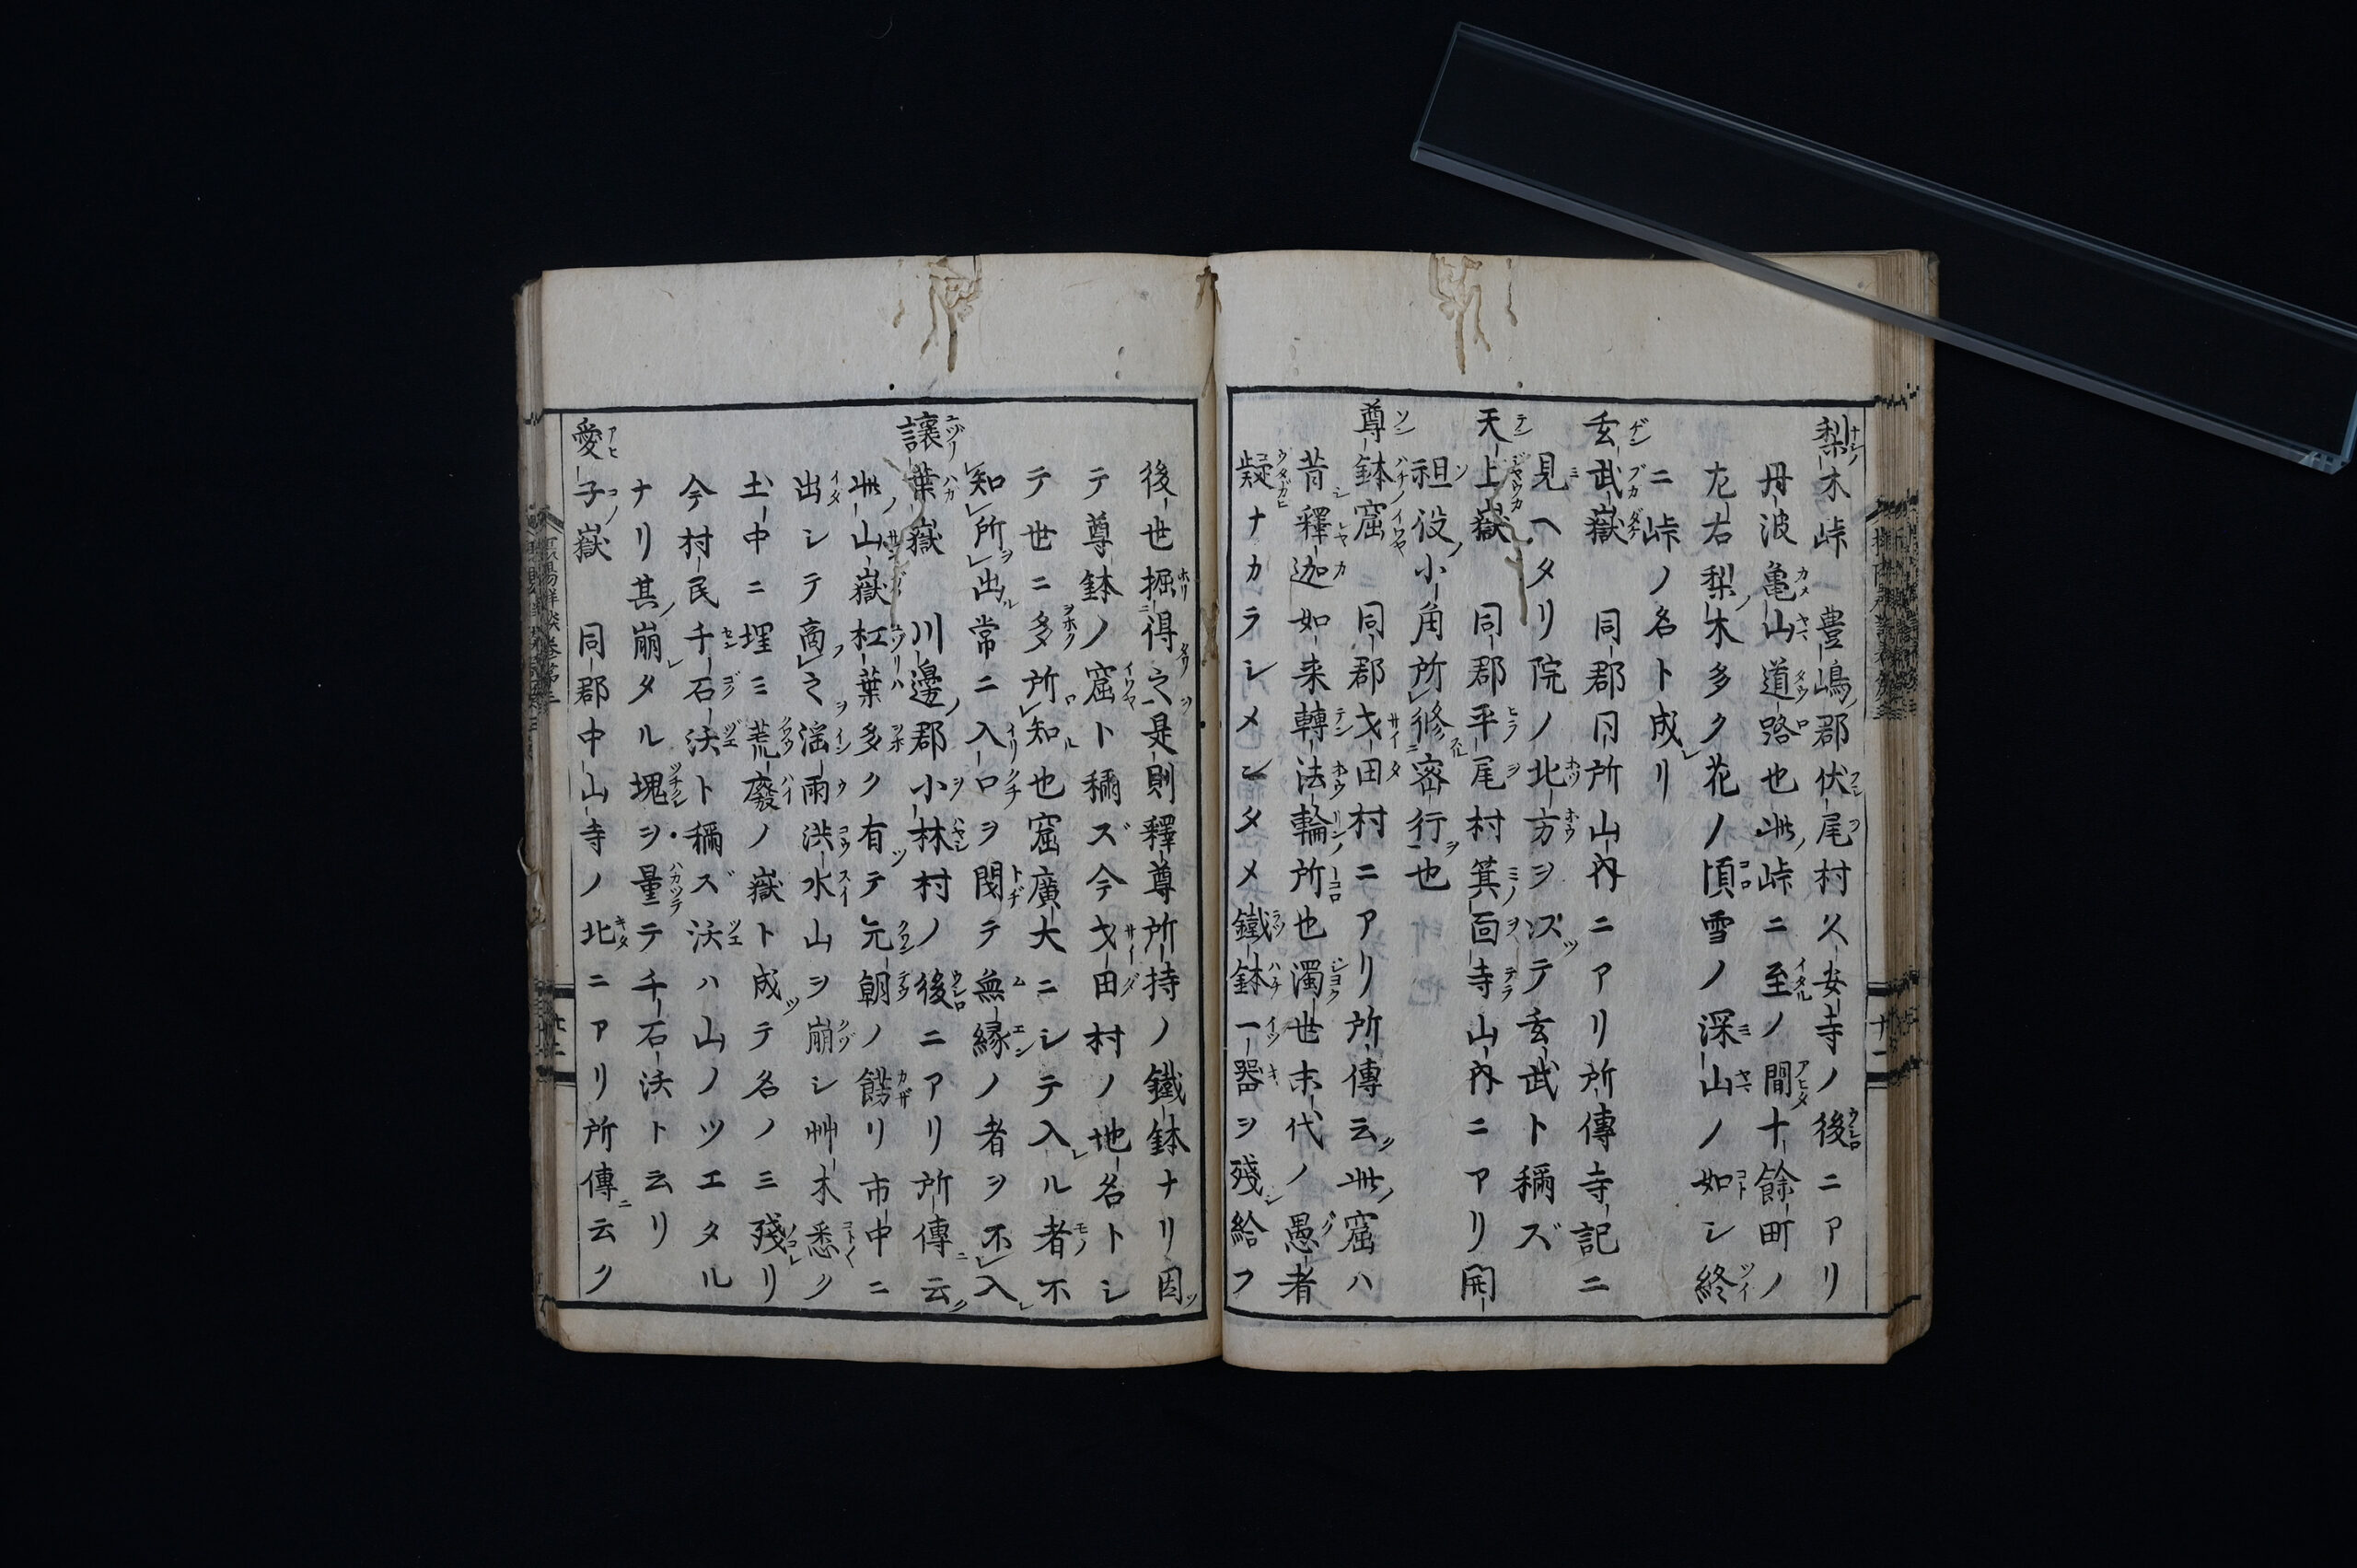 梨木峠 豊嶋郡伏尾村久安寺ノ後ニアリ
丹波亀山道路也此峠ニ至ノ間十餘町ノ
左右梨木多ク花ノ頃雪ノ深山ノ如シ終
ニ峠ノ名ト成リ
玄武嶽 同郡同所山內ニアリ所傳寺記ニ
見ヘタリ院ノ北方ヲ以テ玄武ト稱ズ
天上嶽 同郡平尾村箕面寺山內ニアリ開
祖役小角所修密行也
尊鉢窟 同郡才田村ニアリ所傳云此窟ハ
昔釋迦如来轉法輪所也濁世末代ノ愚者
疑ナカラシメンタメ鐵鉢一器ヲ殘給フ
後世掘得之是則釋尊所持ノ鐵鉢ナリ因
テ尊鉢ノ窟ト稱ズ今才田村ノ地名トシ
テ世ニ多所知也窟廣大ニシテ入ル者不
知所出常ニ入口ヲ閉テ無縁ノ者ヲ不入
讓葉嶽 川邊郡小林村ノ後ニアリ所傳云
此山嶽杠葉多ク有テ元朝ノ餝リ市中ニ
出シテ商之淫雨洪水山ヲ崩シ艸木悉ク
土中ニ埋ミ荒廢ノ嶽ト成テ名ノミ殘リ
今村民千石汰ト稱ズ汰ハ山ノツエタル
ナリ其崩タル塊ヲ量テ千石汰ト云リ
愛子嶽 同郡中山寺ノ北ニアリ所傳云ク